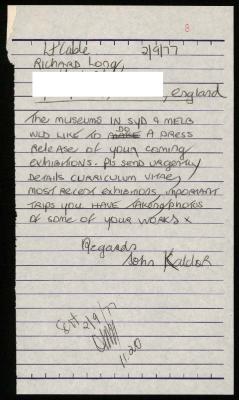 8
Lt Cable 2/9/77
RICHARD LONG,
, England
THE MUSEUMS IN SYD & MELB
WLD LIKE TO DO A PRESS
RELEASE OF YOUR COMING
EXHIBITIONS. PLS SEND URGENTLY
DETAILS CURRICULUM VITAE,
MOST RECENT EXHIBITIONS, IMPORTANT
TRIPS YOU HAVE TAKEN & PHOTOS
OF SOME OF YOUR WORKS x
Regards
John Kaldor
2/9/77
11.20